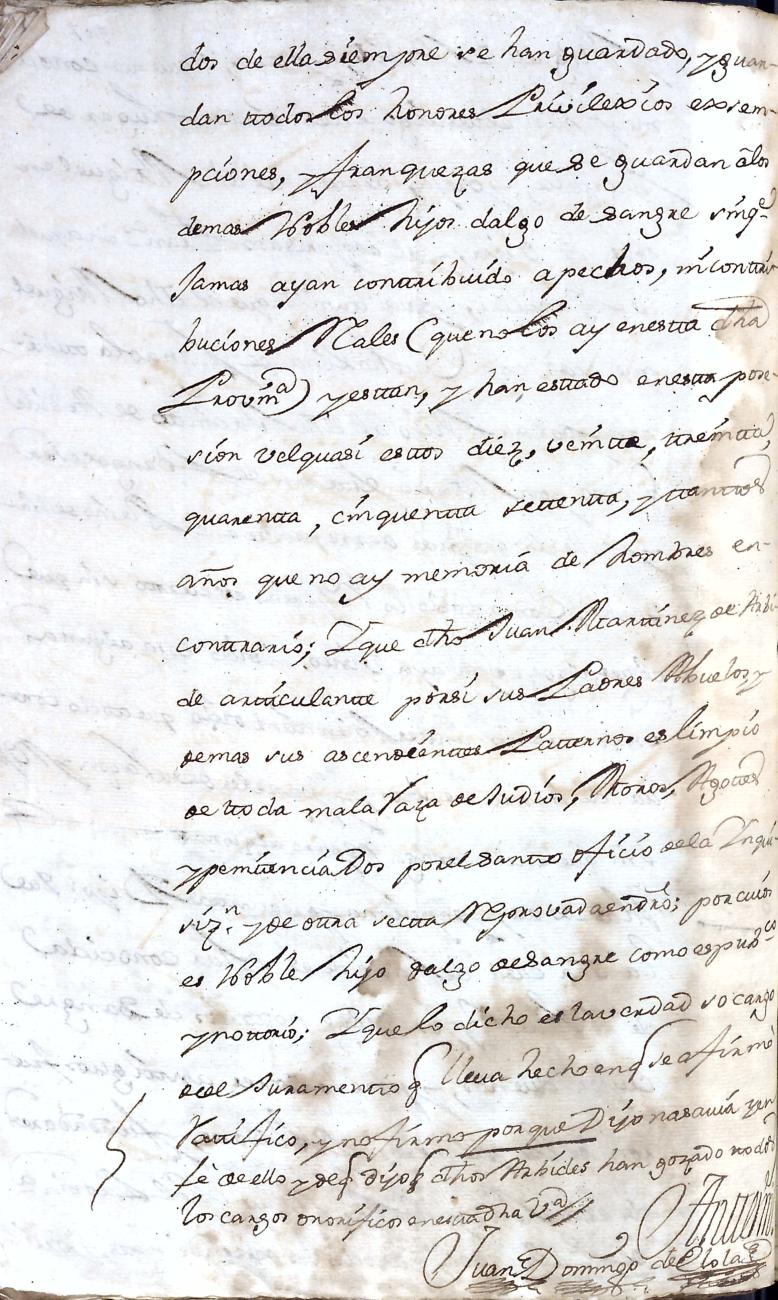 dos de ella siempre se han guardado, y guar-
dan ttodos los honores Privilexios exsem-
pciones, y franquezas que se guardan alos
demas Nobles hijos dalgo de sangre sinq̃
Jamas ayan conttribuido a pechos, ni conttri-
buciones Rales (que no los ay enestta dha
Provinª) y esttan, y han esttado enestta pose-
sion velquasi esttos diez, veintte, ttreintta,
quarentta, cinquentta settentta, y ttanttos
años que no ay memoria de hombres en-
conttrario; Y que dho Juan Marttinez de Arbi
de artticulantte porsi sus Padres Abuelos, y
demas sus ascendienttes Patternos es limpio
de ttoda mala Raza de Judios, Moros, Agottes
y penitenciaDos porel santto oficio de la Ynqui-
sizn. y de ottra sectta Reprovada en dro; por cuios
es Noble hijo dalgo de sangre como es pubco
y nottorio; Y que lo dicho es la verdad so cargo
del Juramentto q̃ lleva hecho enq̃ se afirmó
Rattifico, y no firmo porque Dijo no savia y en
fè de ello y deq̃ dijo q̃ dhos Arbides han gozado ttodos
los cargos onorificos enestta dha Vª
Juan Domingo de Elola